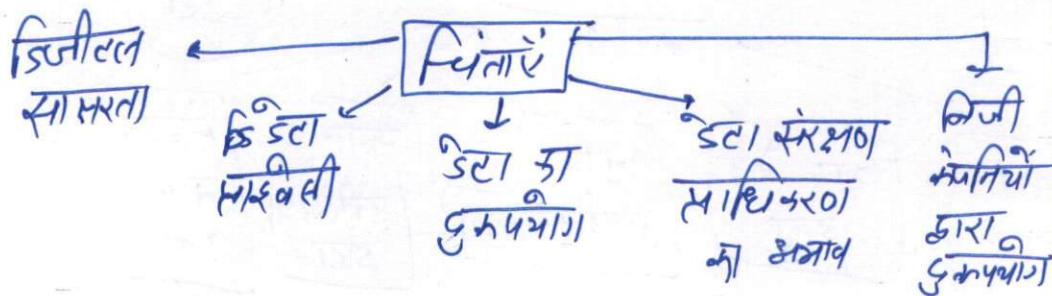 चिंताएँ
डिजीटल
साक्षरता
डेटा
प्राइवेसी
डेटा का
दुरूपयोग
डेटा संरक्षण
प्राधिकरण
का अभाव
निजी
कंपनियों
द्वारा
दुरूपयोग